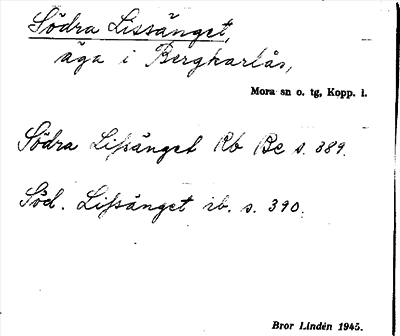 Södra Lissänget,
äga i Bergkarlås,
Mora sn o. tg, Kopp. l.
Södra Lissänget Rb Be s. 389.
Söd. Lissänget ib. s. 390.
Bror Lindén 1945.